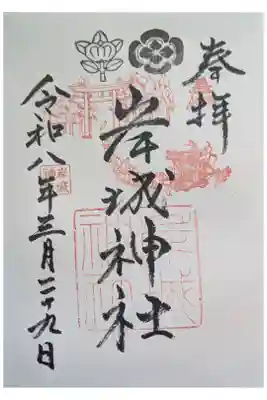 奉拝
岸城神社
令和八年三月二十九日